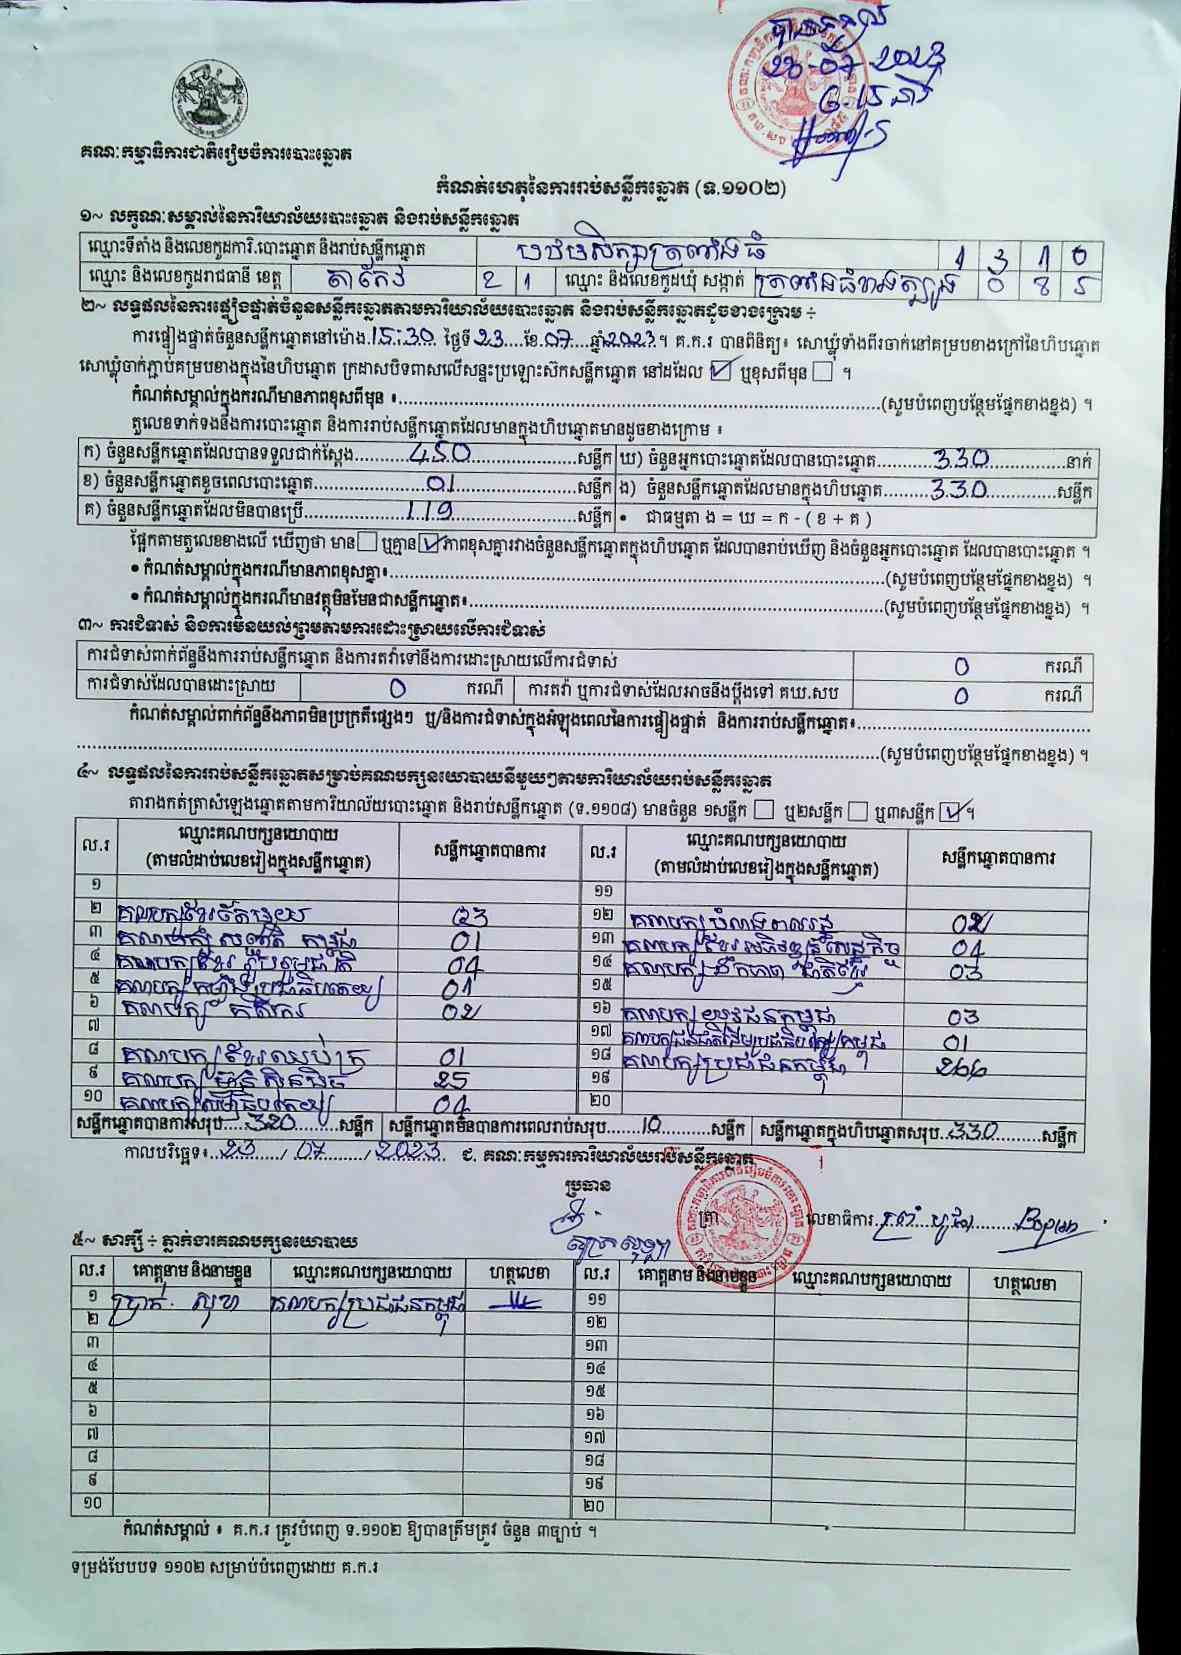 បានទទួល
23-07-2023
គណៈកម្មាធិការជាតិរៀបចំការបោះឆ្នោត
កំណត់ហេតុនៃការរាប់សន្លឹកឆ្នោត (ទ.១១០២)
១~ លក្ខណៈសម្គាល់នៃការិយាល័យបោះឆ្នោត និងរាប់សន្លឹកឆ្នោត
ឈ្មោះទីតាំង និងលេខកូដការិ.បោះឆ្នោត និងរាប់សន្លឹកឆ្នោត បឋមសិក្សាត្រពាំងធំ 1 3 1 0
ឈ្មោះ និងលេខកូដរាជធានី ខេត្ត តាកែវ 2 1 ឈ្មោះ និងលេខកូដឃុំ សង្កាត់ ត្រពាំងធំខាងត្បូង 0 8 5
២~ លទ្ធផលនៃការផ្ទៀងផ្ទាត់ចំនួនសន្លឹកឆ្នោតតាមការិយាល័យបោះឆ្នោត និងរាប់សន្លឹកឆ្នោតដូចខាងក្រោម ÷
ការផ្ទៀងផ្ទាត់ចំនួនសន្លឹកឆ្នោតនៅម៉ោង.15:30. ថ្ងៃទី23....ខែ.07....ឆ្នាំ2023.។ គ.ក.រ បានពិនិត្យ៖ សោឃ្លុំទាំងពីរចាក់នៅគម្របខាងក្រៅនៃហិបឆ្នោត
សោឃ្លុំចាក់ភ្ជាប់គម្របខាងក្នុងនៃហិបឆ្នោត ក្រដាសបិទពាសលើសន្ទះប្រឡោះស៊កសន្លឹកឆ្នោត នៅដដែល ☑ ឬខុសពីមុន ☐ ។
កំណត់សម្គាល់ក្នុងករណីមានភាពខុសពីមុន ៖..........(សូមបំពេញបន្ថែមផ្នែកខាងខ្នង) ។
តួលេខទាក់ទងនឹងការបោះឆ្នោត និងការរាប់សន្លឹកឆ្នោតដែលមានក្នុងហិបឆ្នោតមានដូចខាងក្រោម ៖
ក) ចំនួនសន្លឹកឆ្នោតដែលបានទទួលជាក់ស្តែង..........450..........សន្លឹក ឃ) ចំនួនអ្នកបោះឆ្នោតដែលបានបោះឆ្នោត..........330..........នាក់
ខ) ចំនួនសន្លឹកឆ្នោតខូចពេលបោះឆ្នោត..........01..........សន្លឹក ង) ចំនួនសន្លឹកឆ្នោតដែលមានក្នុងហិបឆ្នោត..........330..........សន្លឹក
គ) ចំនួនសន្លឹកឆ្នោតដែលមិនបានប្រើ..........119..........សន្លឹក • ជាធម្មតា ង = ឃ = ក - ( ខ + គ )
ផ្អែកតាមតួលេខខាងលើ ឃើញថា មាន☐ ឬគ្មាន☑ភាពខុសគ្នារវាងចំនួនសន្លឹកឆ្នោតក្នុងហិបឆ្នោត ដែលបានរាប់ឃើញ និងចំនួនអ្នកបោះឆ្នោត ដែលបានបោះឆ្នោត ។
• កំណត់សម្គាល់ក្នុងករណីមានភាពខុសគ្នា៖..........(សូមបំពេញបន្ថែមផ្នែកខាងខ្នង) ។
• កំណត់សម្គាល់ក្នុងករណីមានវត្ថុមិនមែនជាសន្លឹកឆ្នោត៖..........(សូមបំពេញបន្ថែមផ្នែកខាងខ្នង) ។
៣~ ការជំទាស់ និងការមិនយល់ព្រមតាមការដោះស្រាយលើការជំទាស់
ការជំទាស់ពាក់ព័ន្ធនឹងការរាប់សន្លឹកឆ្នោត និងការតវ៉ាទៅនឹងការដោះស្រាយលើការជំទាស់ 0 ករណី
ការជំទាស់ដែលបានដោះស្រាយ 0 ករណី ការតវ៉ា ឬការជំទាស់ដែលអាចនឹងប្តឹងទៅ គឃ.សប 0 ករណី
កំណត់សម្គាល់ពាក់ព័ន្ធនឹងភាពមិនប្រក្រតីផ្សេងៗ ឬ/និងការជំទាស់ក្នុងអំឡុងពេលនៃការផ្ទៀងផ្ទាត់ និងការរាប់សន្លឹកឆ្នោត៖..........
..........(សូមបំពេញបន្ថែមផ្នែកខាងខ្នង) ។
៤~ លទ្ធផលនៃការរាប់សន្លឹកឆ្នោតសម្រាប់គណបក្សនយោបាយនីមួយៗតាមការិយាល័យរាប់សន្លឹកឆ្នោត
តារាងកត់ត្រាសំឡេងឆ្នោតតាមការិយាល័យបោះឆ្នោត និងរាប់សន្លឹកឆ្នោត (ទ.១១០៨) មានចំនួន ១សន្លឹក ☐ ឬ២សន្លឹក ☐ ឬ៣សន្លឹក ☑។
ល.រ ឈ្មោះគណបក្សនយោបាយ (តាមលំដាប់លេខរៀងក្នុងសន្លឹកឆ្នោត) សន្លឹកឆ្នោតបានការ ល.រ ឈ្មោះគណបក្សនយោបាយ (តាមលំដាប់លេខរៀងក្នុងសន្លឹកឆ្នោត) សន្លឹកឆ្នោតបានការ
១ ១១
២ គណបក្សខ្មែរតែមួយ ១២ គណបក្ស
៣ គណបក្ស កម្ពុជា 01 ១៣ គណបក្សខ្មែរអភិវឌ្ឍន៍សេដ្ឋកិច្ច 04
៤ គណបក្សខ្មែររួបរួមជាតិ 04 ១៤ គណបក្សឯកភាពជាតិខ្មែរ 03
៥ គណបក្សកម្លាំងប្រជាធិបតេយ្យ 01 ១៥
៦ គណបក្ស កសិករ 02 ១៦ គណបក្សយុវជនកម្ពុជា 03
៧ ១៧ គណបក្សជនជាតិដើមប្រជាធិបតេយ្យកម្ពុជា 01
៨ គណបក្សខ្មែរឈប់ក្រ 01 ១៨ គណបក្សប្រជាជនកម្ពុជា 266
៩ គណបក្សហ៊្វុនស៊ិនប៉ិច 25 ១៩
១០ គណបក្សធម្មាធិបតេយ្យ 04 ២០
សន្លឹកឆ្នោតបានការសរុប....320........សន្លឹក សន្លឹកឆ្នោតមិនបានការពេលរាប់សរុប......10.........សន្លឹក សន្លឹកឆ្នោតក្នុងហិបឆ្នោតសរុប.330..........សន្លឹក
កាលបរិច្ឆេទ៖..23......../.07......../.2023. ជ. គណៈកម្មការការិយាល័យរាប់សន្លឹកឆ្នោត
ប្រធាន
ត្រា លេខាធិការ
៥~ សាក្សី ÷ ភ្នាក់ងារគណបក្សនយោបាយ
ល.រ គោត្តនាម និងនាមខ្លួន ឈ្មោះគណបក្សនយោបាយ ហត្ថលេខា ល.រ គោត្តនាម និងនាមខ្លួន ឈ្មោះគណបក្សនយោបាយ ហត្ថលេខា
១ ប្រាក់ គណបក្សប្រជាជនកម្ពុជា ១១
២ ១២
៣ ១៣
៤ ១៤
៥ ១៥
៦ ១៦
៧ ១៧
៨ ១៨
៩ ១៩
១០ ២០
កំណត់សម្គាល់ ៖ គ.ក.រ ត្រូវបំពេញ ទ.១១០២ ឱ្យបានត្រឹមត្រូវ ចំនួន ៣ច្បាប់ ។
ទម្រង់បែបបទ ១១០២ សម្រាប់បំពេញដោយ គ.ក.រ